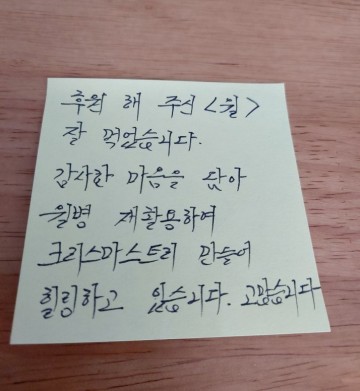 후원 해 주신 <윌>
잘 먹었습니다.
감사한 마음을 담아
윌병 재활용하여
크리스마스트리 만들어
힐링하고 있습니다. 고맙습니다